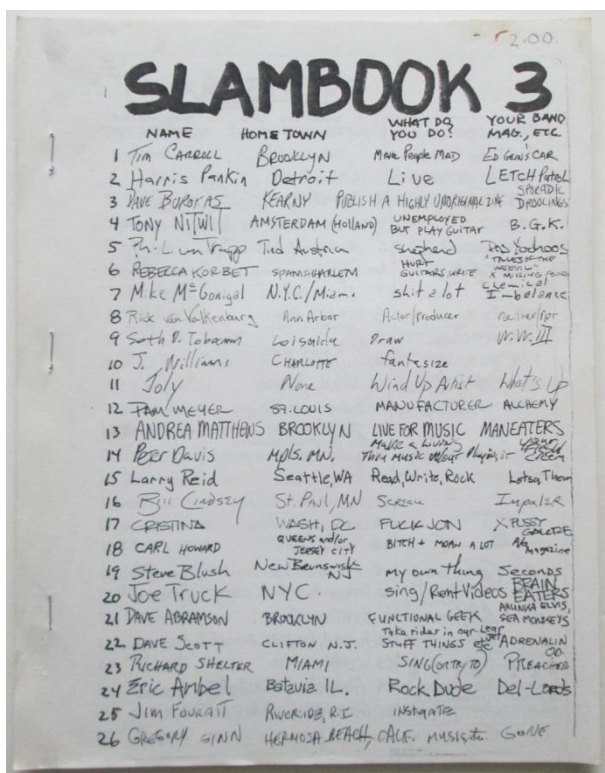 2.00
SLAMBOOK 3
NAME HOME TOWN WHAT DO YOU DO? YOUR BAND MAG., ETC
1 TIM CARROLL BROOKLYN Make People MAD ED GEIN'S CAR
2 Harris Pankin Detroit Live LETCH PATROL
3 DAVE KEARNY PUBLISH A HIGHLY UNORIGINAL ZINE SPORADIC DROOLINGS
4 TONY NITWIT AMSTERDAM (HOLLAND) UNEMPLOYED BUT PLAY GUITAR B.G.K.
5 Phil Austria shepherd
6 REBECCA KORBET SPANISH HARLEM HURT GUITARS, WRITE "TALES OF THE
7 Mike McGonigal N.Y.C./Miami shit a lot Chemical Imbalance
8 Rick van Valkenburg Ann Arbor Actor/producer
9 Seth D. Tobocman Loisaida Draw W.W. III
10 J. Williams CHARLOTTE fantasize
11 Joly None Wind Up Artist What's Up
12 PAM MEYER ST. LOUIS MANUFACTURER ALCHEMY
13 ANDREA MATTHEWS BROOKLYN LIVE FOR MUSIC MANEATERS
14 Peter Davis MPLS. MN. Make a Living Thru Music w/out Playing it Your Flesh Creem
15 Larry Reid Seattle, WA Read, Write, Rock Lotsa, Them
16 Bill Lindsey St. Paul, MN Scream Impaler
17 CRISTINA WASH, DC FUCK JON PUSSY GALORE
18 CARL HOWARD QUEENS and/or JERSEY CITY BITCH + MOAN A LOT Magazine
19 Steve Blush New Brunswick NJ my own thing Seconds
20 Joe TRUCK NYC. sing/Rent Videos BRAIN EATERS
21 DAVE ABRAMSON BROOKLYN FUNCTIONAL GEEK ELVIS, SEA MONKEYS
22 DAVE SCOTT CLIFTON N.J. Take rides in our Lear jet STUFF THINGS etc ADRENALIN OD
23 RICHARD SHELTER MIAMI SING (or try to) PREACHER
24 Eric Batavia IL. Rock Dude Del-Lords
25 JIM FOURATT RIVERSIDE, R.I. INSTIGATE
26 GREGORY GINN HERMOSA BEACH, CALF. GONE